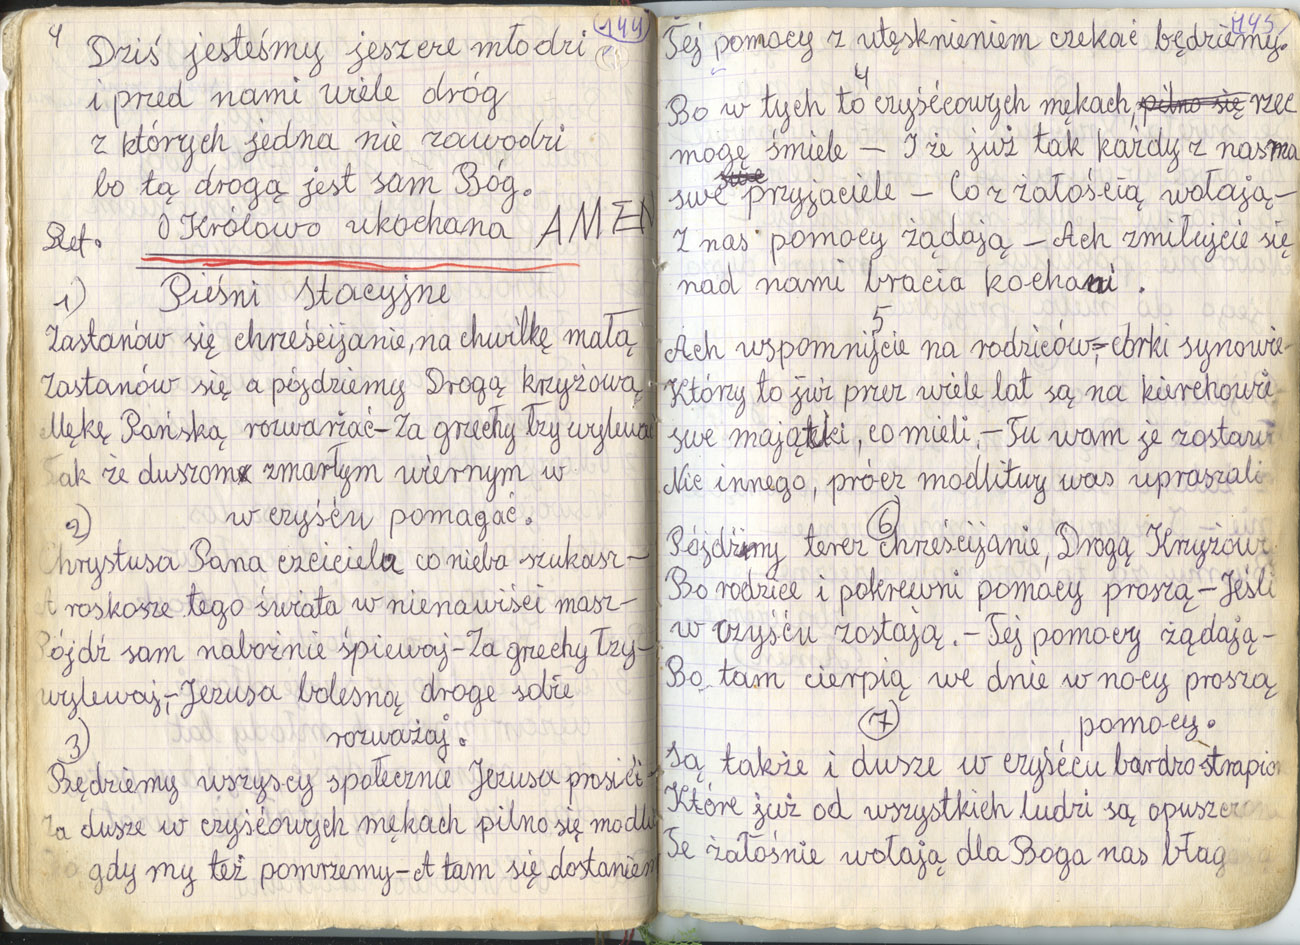 4
144
Dziś jesteśmy jeszcze młodzi
i pred nami wiele dróg
z których jedna nie zawodzi
bo tą drogą jest sam Bóg.
Ref. O Królowo ukochana AMEN
1) Pieśni stacyjne
Zastanów się chrześcijanie, na chwilkę małą
Zastanów się a pójdziemy Drogą krzyżową
Mękę Pańską rozważać – Za grzechy łzy wylewać
Tak że duszom zmarłym wiernym w
w czyśću pomagać.
2)
Chrystusa Pana czciciela co nieba szukasz –
A roskosze tego świata w nienawiści masz –
Pójdź sam nabożnie śpiewaj – Za grzechy łzy –
wylewaj, – Jezusa bolesną droge sobie
rozważaj.
3)
Będziemy wszyscy społecznie Jezusa prosići –
Za dusze w czyśćowych mękach pilno się modli
gdy my też pomrzemy – A tam się dostaniem
145
Tej pomocy z utęsknieniem czekać będziemy.
4
Bo w tych to czyśćcowych mękach, pilno się rzec
mogę śmiele – I że już tak każdy z nas ma
swe przyjaciele – Co z żałością wołają –
Z nas pomocy żądają – Ach zmiłujcie się
nad nami bracia kochani.
5
Ach wspomnijcie na rodziców, – córki synowie –
Którzy to już przez wiele lat są na kierchowie
swe majątki, co mieli, – Tu wam je zostawi
Nic innego, prócz modlitwy was upraszali
6
Pójdźmy terez chrześcijanie, Drogą Krzyżową
Bo rodzice i pokrewni pomocy proszą – Jeśli
w czyśću zostają. – Tej pomocy żądają –
Bo tam cierpią we dnie w nocy proszą
pomocy.
7
Są także i dusze w czyśću bardzo strapion
Które już od wszystkich ludzi są opuszczone
Te żałośnie wołają dla Boga nas błag